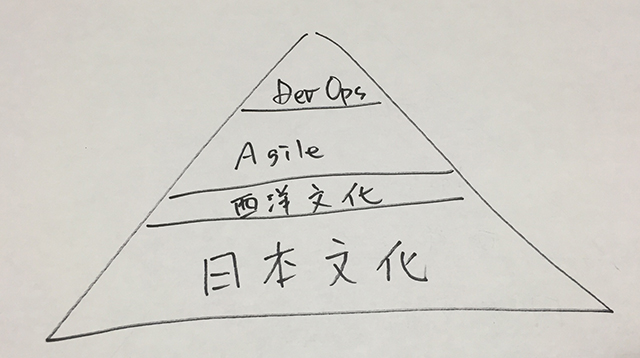 DevOps
Agile
西洋文化
日本文化